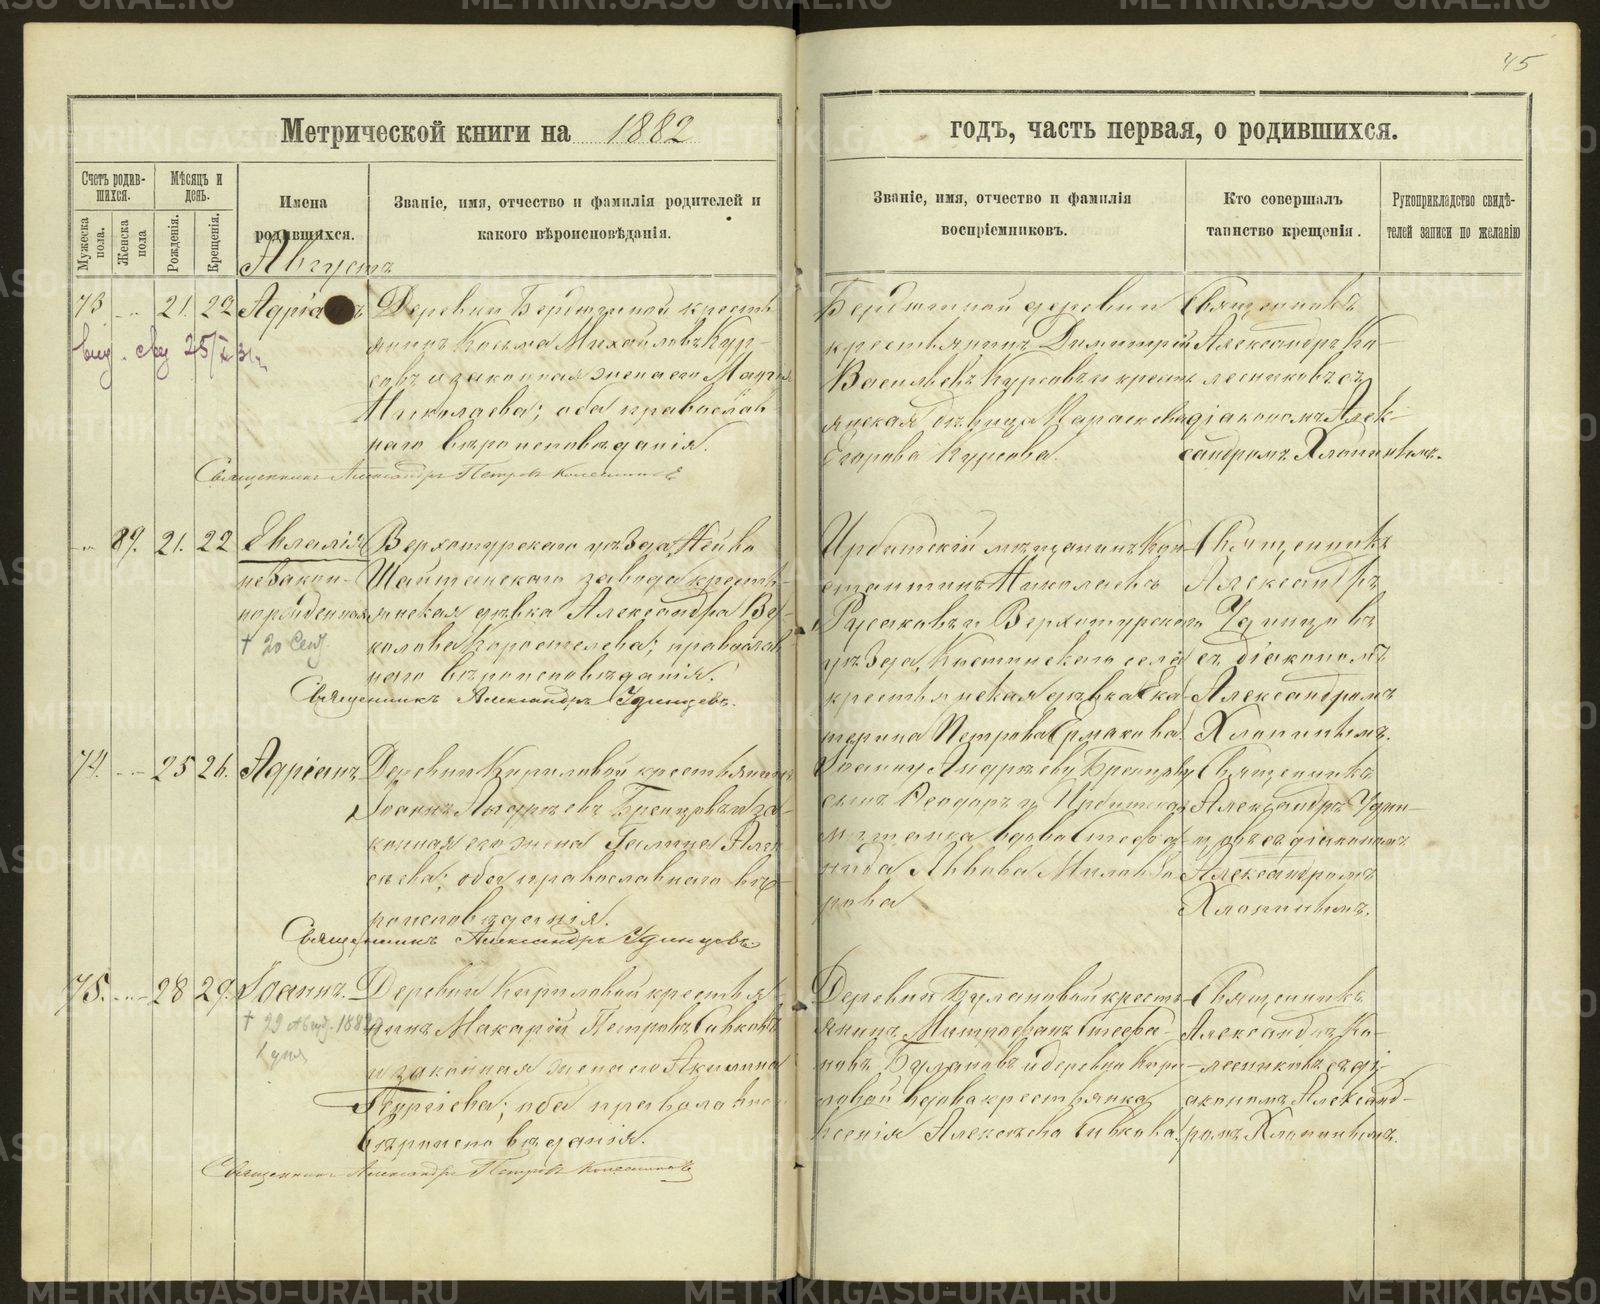 45
Метрической книги на 1882
годъ, часть первая, о родившихся.
Счетъ родив-
шихся.
Мѣсяцъ и
день.
Мужеска
пола.
Женска
пола
Рожденія.
Крещенія.
Имена
родившихся.
Званіе, имя, отчество и фамилія родителей и
какого вѣроисповѣданія.
Званіе, имя, отчество и фамилія
воспріемниковъ.
Кто совершалъ
таинство крещенія.
Рукоприкладство свидѣ-
телей записи по желанію
Августъ
73 21. 22
Деревни Бердюгиной кресть
янинъ Косьма Михайловъ Кур-
совъ и законная жена его Марія
Николаева; оба православ
наго вѣроисповѣданія.
Священникъ Александръ Петровъ Колесниковъ
Бердюгиной деревни
крестьянинъ Димитрій
Васильевъ Курсовъ и кресть
янская дѣвица Параскева
Егорова Курсова.
Священникъ
Александръ Ко-
лесниковъ съ
діакономъ Алек-
сандромъ Хлопинымъ.
89. 21. 22
Евлалія
незакон-
норожденная
† 20 Сент.
Верхотурскаго уѣзда, Нейво
Шайтанскаго завода кресть-
янская дѣвка Александра Ву-
колова Коростелева; православ
наго вѣроисповѣданія.
Священникъ Александръ Удинцевъ.
Ирбитскій мѣщанинъ Кон-
стантинъ Николаевъ
Русаковъ и Верхотурскаго
уѣзда, Костинскаго села
крестьянская дѣвка Ека-
терина Петрова Ермакова.
Священникъ
Александръ
Удинцевъ
съ діакономъ
Александромъ
Хлопинымъ.
74. 25 26.
Адріанъ
Деревни Кириловой крестьянинъ
Іоаннъ Андреевъ Бренцовъ и за-
конная его жена Галина Алек
сѣева; оба православнаго вѣ-
роисповѣданія.
Священникъ Александръ Удинцевъ.
сынъ Ѳеодоръ и Ирбитская
мѣщанка вдова Стефа-
нида Львова Милова
Священникъ
Александръ Удин-
цевъ съ діакономъ
Александромъ
Хлопинымъ.
75. 28 29.
Іоаннъ.
† 29 Август. 1882
1 дня
Деревни Кириловой крестья
нинъ Макарій Петровъ Сивковъ
и законная жена его Акилина
Георгіева; оба православнаго
вѣроисповѣданія.
Священникъ Александръ Петровъ Колесниковъ
Деревни Булановой кресть
янинъ Митрофанъ Стефа-
новъ Булановъ и деревни Кири
ловой вдова крестьянка
Ксенія Алексѣева Сивкова.
Священникъ
Александръ Ко-
лесниковъ съ ді-
акономъ Александ-
ромъ Хлопинымъ.